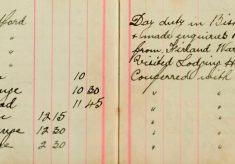 ford
"
"
"
10
nge 10 30
d 11 45
12 15
nge 12 30
2 30
Day duty in Bis
& made enquiries
from Kirkland War
Visited Lodging H
Conferred with
"
"
"
"